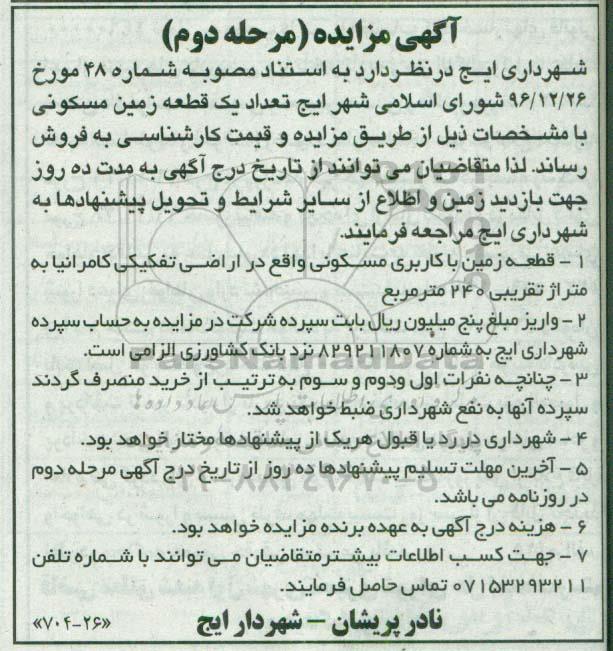 آگهی مزایده (مرحله دوم)
شهرداری ایج در نظر دارد به استناد مصوبه شماره ۴۸ مورخ
۹۶/۱۲/۲۶ شورای اسلامی شهر ایج تعداد یک قطعه زمین مسکونی
با مشخصات ذیل از طریق مزایده و قیمت کارشناسی به فروش
رساند. لذا متقاضیان می توانند از تاریخ درج آگهی به مدت ده روز
جهت بازدید زمین و اطلاع از سایر شرایط و تحویل پیشنهادها به
شهرداری ایج مراجعه فرمایند.
۱ - قطعه زمین با کاربری مسکونی واقع در اراضی تفکیکی کامرانیا به
متراژ تقریبی ۲۴۰ مترمربع
۲ - واریز مبلغ پنج میلیون ریال بابت سپرده شرکت در مزایده به حساب سپرده
شهرداری ایج به شماره ۸۲۹۲۱۱۸۰۷ نزد بانک کشاورزی الزامی است.
۳ - چنانچه نفرات اول ودوم و سوم به ترتیب از خرید منصرف گردند
سپرده آنها به نفع شهرداری ضبط خواهد شد.
۴ - شهرداری در رد یا قبول هریک از پیشنهادها مختار خواهد بود.
۵ - آخرین مهلت تسلیم پیشنهادها ده روز از تاریخ درج آگهی مرحله دوم
در روزنامه می باشد.
۶ - هزینه درج آگهی به عهده برنده مزایده خواهد بود.
۷ - جهت کسب اطلاعات بیشتر متقاضیان می توانند با شماره تلفن
۰۷۱۵۳۲۹۳۲۱۱ تماس حاصل فرمایند.
نادر پریشان – شهردار ایج
«۷۰۴-۲۶»
ParsNamadData